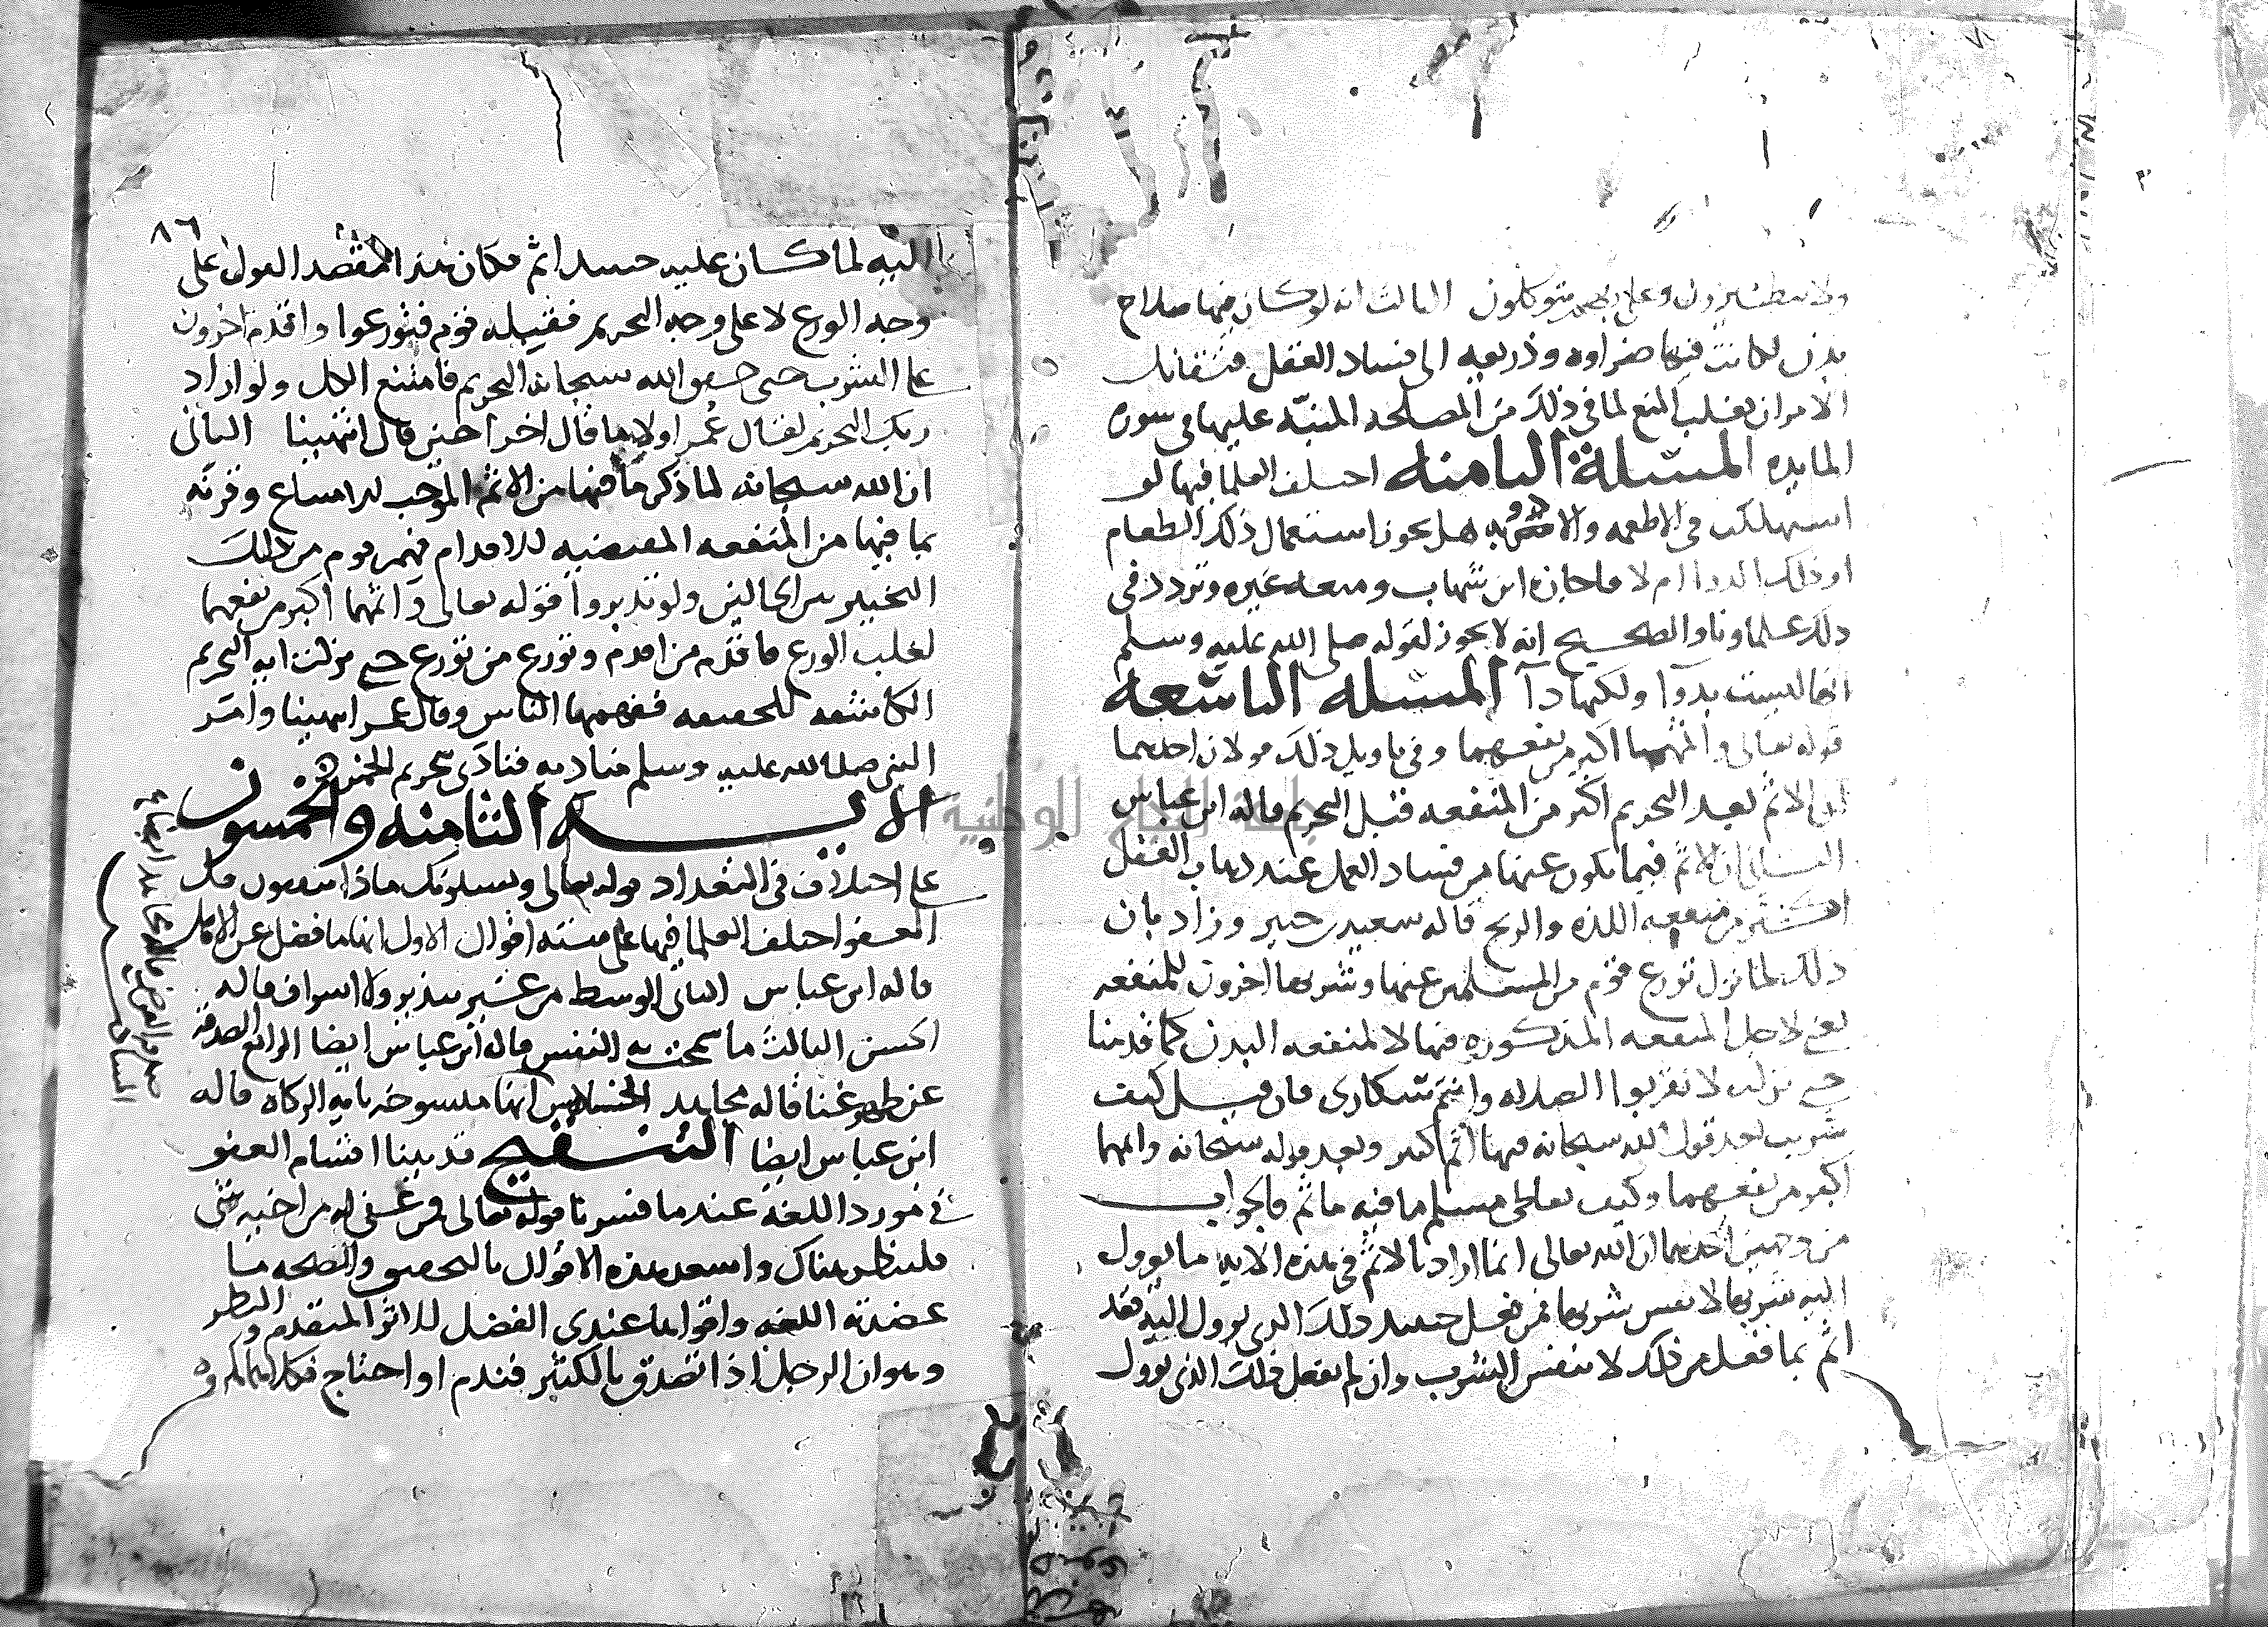 ولا يتطيرون وعلى ربهم يتوكلون الثالث انه لو كان فيها صلاح
بدن لكانت فيها ضراوه وذريعه الى فساد العقل فتقابل
الامران فغلب المنع لما في ذلك من المصلحه المنبه عليها في سوره
المايده المسلة الثامنه اختلف العلما فيها لو
استهلكت في الاطعمه والادويه هل يجوز استعمال ذلك الطعام
او ذلك الدوا ام لا فاجازه ابن شهاب ومنعه غيره وتردد في
ذلك علماونا والصحيح انه لا يجوز لقوله صلى الله عليه وسلم
انها ليست بدوآ ولكنها دآ المسله التاسعه
قوله تعالى واثمهما اكبر من نفعهما وفي تاويل ذلك قولان احدهما
ان الاثم بعد التحريم اكبر من المنفعه قبل التحريم قاله ابن عباس
الثاني ان الاثم فيما يكون عنها من فساد العقل عند ذهاب العقل
اكثر من منفعه اللذه والربح قاله سعيد بن جبير وزاد بان
ذلك لما نزل تورع قوم من المسلمين عنها وشربها اخرون للمنفعه
يعني لاجل المنفعه المذكوره فيها لا لمنفعه البدن كما قدمنا
حتى نزلت لا تقربوا الصلاه وانتم سكارى فان قيل كيف
شربت بعد قول الله سبحانه فيها اثم كبير وبعد قوله سبحانه واثمهما
اكبر من نفعهما وكيف تعاطى مسلم ما فيه ماثم فالجواب
من وجهين احدهما ان الله تعالى انما اراد بالاثم في هذه الايه ما يوول
اليه شربها لا نفس شربها فمن فعل حينيد ذلك الذي يوول اليه فقد
اثم بما فعل من ذلك لا بنفس الشرب وان لم يفعل ذلك الذي يوول
٨٦
اليه لما كان عليه حينيذ اثم فكان هذا المقصد القول على
وجه الورع لا على وجه التحريم فقبله قوم فتورعوا واقدم اخرون
على الشرب حتى حقق الله سبحانه التحريم فامتنع الكل ولو اراد
ربك التحريم لقال عمر اولا ما قال اخرا حين قال انتهينا الثاني
ان الله سبحانه لما ذكر ما فيها من الاثم الموجب للامتناع وقرنه
بما فيها من المنفعه المقتضيه للاقدام فهم قوم من ذلك
التخيير بين الحالين ولو تدبروا قوله تعالى واثمهما اكبر من نفعهما
لغلب الورع فاقدم من اقدم وتورع من تورع حتى نزلت ايه التحريم
الكاشفه للحقيقه ففهمها الناس وقال عمر انتهينا وامر
النبي صلى الله عليه وسلم مناديه فنادى بتحريم الخمر
الايـــــه الثامنه والخمسون
على اختلاف في التعداد قوله تعالى ويسلونك ماذا ينفقون قل
العفو اختلف العلما فيها على سته اقوال الاول انها ما فضل عن الاهل
قاله ابن عباس الثاني الوسط من غير تبذير ولا اسراف قاله
الحسن الثالث ما سمحت به النفس قاله ابن عباس ايضا الرابع الصدقه
عن ظهر غنا قاله مجاهد الخامس انها منسوخه بايه الزكاه قاله
ابن عباس ايضا التنقيح قد بينا اقسام العفو
في مورد اللغه عندما فسرنا قوله تعالى فمن عفي له من اخيه شي
فلينظر هناك واسعد هذه الاقوال بالتحقيق والصحه ما
عضدته اللغه واقواها عندي الفضل للاثر المتقدم والنظر
وهو ان الرجل اذا تصدق بالكثير فندم او احتاج فكلاهما مكروه
صدقه الفرض قاله مجاهد ايضا
السادس